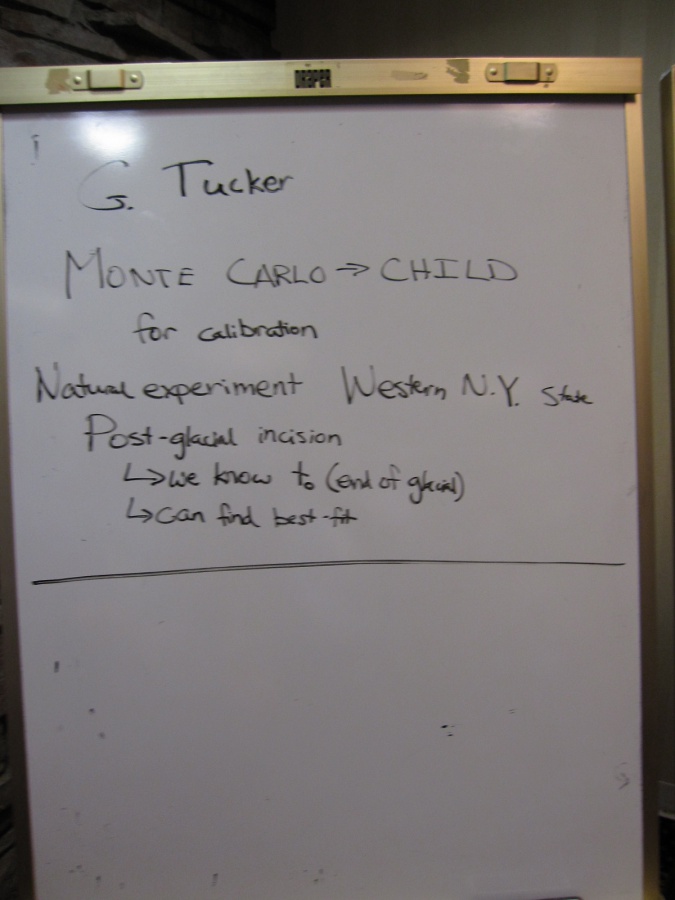 DRAPER
G. Tucker
MONTE CARLO → CHILD
for calibration
Natural experiment Western N.Y. State
Post-glacial incision
↳ we know t₀ (end of glacial)
↳ can find best-fit